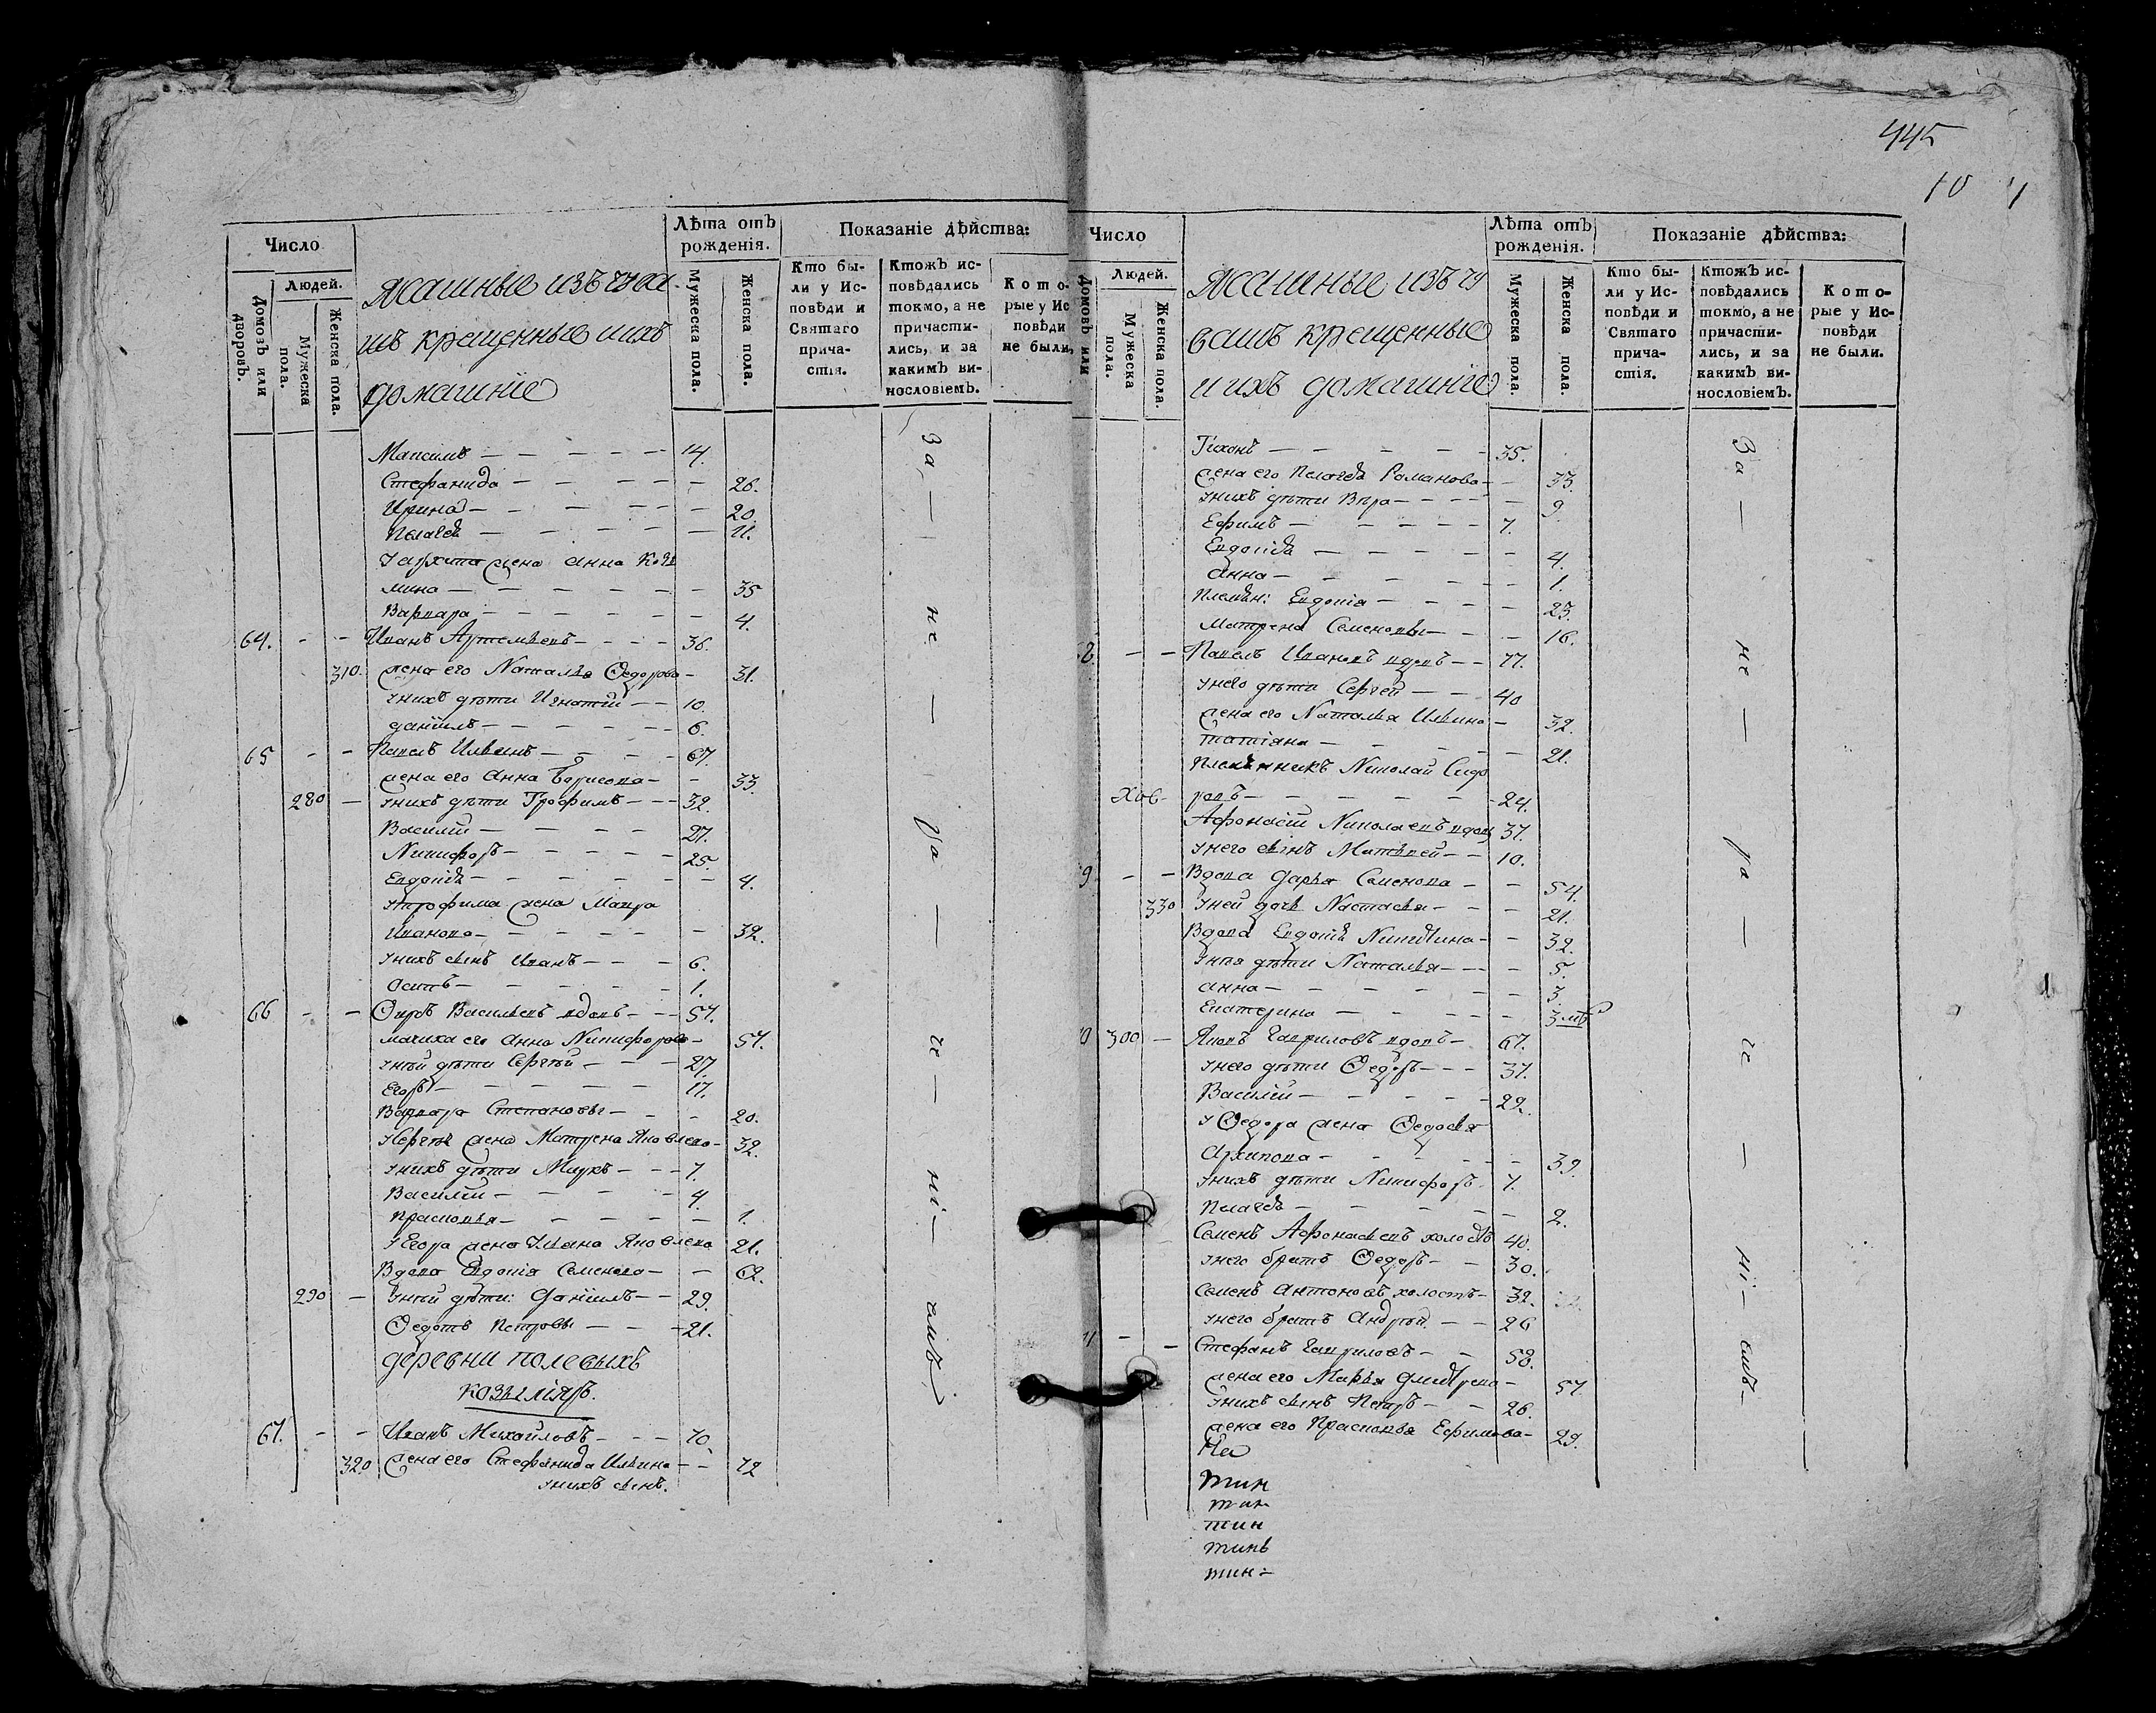 445
10
Число
Людей.
Домовъ или дворовъ.
Мужеска пола.
Женска пола.
Ясашные изъ чува-
шъ крещенные и ихъ
домашніе
Лѣта отъ рожденія.
Мужеска пола.
Женска пола.
Показаніе дѣйства:
Кто бы-
ли у Ис-
повѣди и
Святаго
прича-
стія.
Ктожъ ис-
повѣдались
токмо, а не
причасти-
лись, и за
какимъ ви-
нословіемъ.
Кото-
рые у Ис
повѣди
не были,
Максимъ 14.
Стефанида 26.
Ирина 20
Пелагея 11.
жена Анна Козь
мина 35
Варвара 4.
64. Иванъ Артемьевъ 36.
310. жена его Наталья Ѳедорова 31.
у нихъ дѣти Игнатій 10.
Даніилъ 6.
65 Павелъ Ильинъ 67.
жена его Анна Борисова 33.
280 у нихъ дѣти Трофимъ 32.
Василій 27.
Никифоръ 25.
Евдокія 4.
у Трофима жена Мавра
Иванова 32.
у нихъ сынъ Иванъ 6.
Осипъ 1.
66 Васильевъ вдовъ 57.
мачиха его Анна Никифорова 57.
у ней дѣти Сергѣй 27.
Егоръ 17.
Варвара Степановы 20.
у Сергѣя жена Матрена Яковлева 32.
у нихъ дѣти Маркъ 7.
Василій 4.
Прасковья 1.
у Егора жена Ульяна Яковлева 21.
Вдова Евдокія Семенова 62.
290 у ней дѣти: Даніилъ 29.
Ѳедотъ Петровы 21.
деревни полевыхъ
козыляръ.
67. Иванъ Михайловъ 70.
320 жена его Стефанида Ильина 72
у нихъ сынъ.
За — не — ра — че — ні — емъ
Число
Людей.
Домовъ или
Мужеска пола.
Женска пола.
Ясашные изъ чу
вашъ крещенные
и ихъ домашніе
Лѣта отъ рожденія.
Мужеска пола.
Женска пола.
Показаніе дѣйства:
Кто бы-
ли у Ис-
повѣди и
Святаго
прича-
стія.
Ктожъ ис-
повѣдались
токмо, а не
причасти-
лись, и за
какимъ ви-
нословіемъ.
Кото-
рые у Ис-
повѣди
не были.
Тихонъ 35.
жена его Пелагея Романова 33.
у нихъ дѣти Вѣра 9.
Ефимъ 7.
Евдокія 4.
Анна 1.
Племян: Евдокія 23.
Матрена Семеновы 16.
8. Павелъ Ивановъ вдовъ 77.
у него дѣти Сергей 40
жена его Наталья Ильина 32.
Татіяна 21.
Племянникъ Николай Сидо
ровъ 24.
Афонасій Николаевъ вдовъ 37.
у него сынъ Матвей 10.
9 Вдова Дарья Семенова 54.
330 у ней дочь Настасья 21.
Вдова Евдокія Никитина 32.
у нея дѣти Наталья 5.
Анна 3.
Екатерина 3 мѣ
0 300 Яковъ Гавриловъ вдовъ 67.
у него дѣти Ѳедоръ 37.
Василій 22.
у Ѳедора жена Ѳедосья
Архипова 39.
у нихъ дѣти Никифоръ 7.
Пелагея 2.
Семенъ Афонасьевъ холостъ 40.
у него братъ Ѳедоръ 30.
Семенъ Антоновъ холостъ 32.
у него братъ Андрей 26
Стефанъ Гавриловъ 58.
жена его Марья Дмитрева 57.
у нихъ сынъ Петръ 26.
жена его Прасковья Ефимова 29.
тин
тин
тин
тинь
тин
За — не — ра — че — ні — емъ